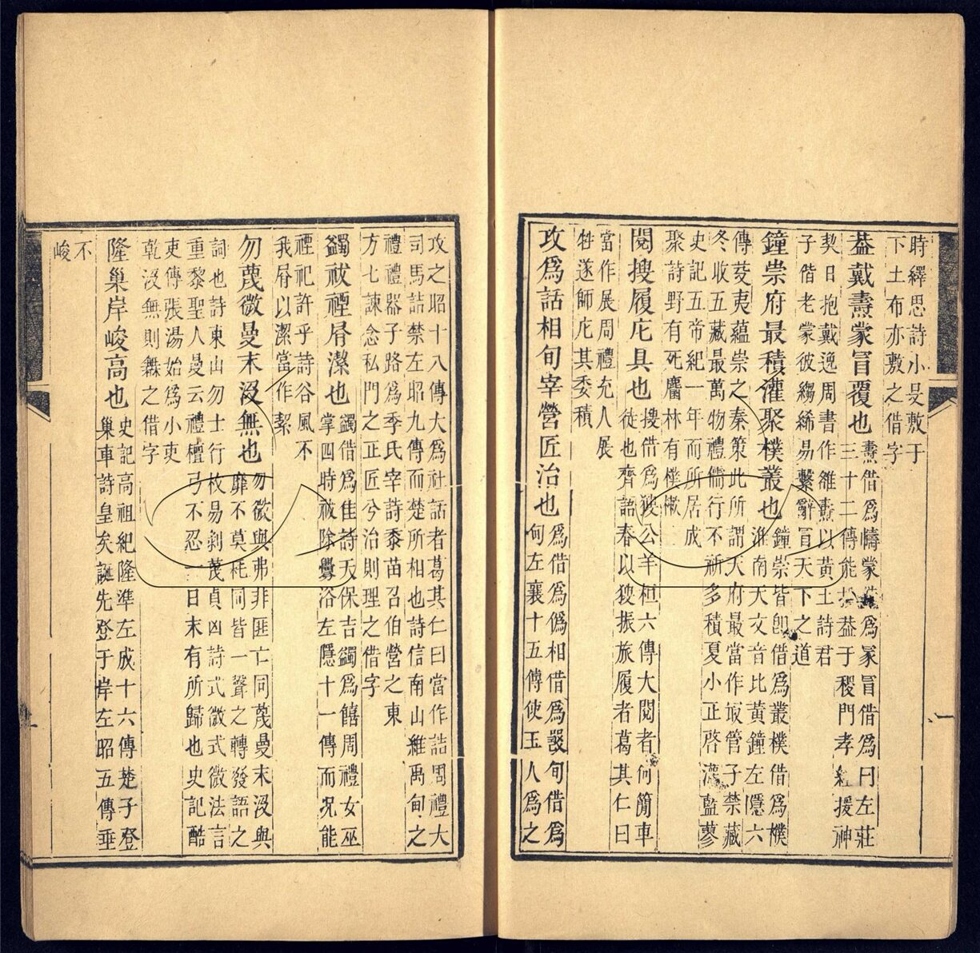 時繹思詩小旻敷于
下土布亦敷之借字
葢戴燾蒙冒覆也
燾借爲幬蒙借爲冡冒借爲冃左莊
三十二傳能投葢于稷門孝經援神
契曰抱戴逸周書作雒燾以黃土詩君
子偕老蒙彼縐絺易繫辭冒天下之道
鐘崇府最積灌聚樸叢也
鐘崇皆卽借爲叢樸借爲樸
淮南天文音比黃鐘左隱六
傳芟夷蘊崇之秦策此所謂天府最當作冣管子禁藏
冬收五藏最萬物禮儒行不祈多積夏小正啓灌藍蓼
史記五帝紀一年而所居成
聚詩野有死麕林有樸樕
閱搜履庀具也
搜借爲獀公羊桓六傳大閱者何簡車
徒也齊語春以獀振旅履者葛其仁曰
當作展周禮充人展
牲遂師庀其委積
攻爲話相旬宰營匠治也
爲借爲僞相借爲旬借爲
甸左襄十五傳使玉人爲之
攻之昭十八傳大爲社話者葛其仁曰當作詰周禮大
司馬詰禁左昭九傳而楚所相也詩信南山維禹甸之
禮禮器子路爲季氏宰詩黍苗召伯營之東
方七諫念私門之正匠兮治則理之借字
蠲祓禋屑潔也
蠲借爲佳詩天保吉蠲爲饎周禮女巫
掌四時祓除釁浴左隱十一傳而況能
禋祀許乎詩谷風不
我屑以潔當作絜
勿蔑微曼末沒無也
勿微與弗非匪亡同蔑曼末沒與
靡不莫耗同皆一聲之轉發語之
詞也詩東山勿士行枚易剝蔑貞凶詩式微式微法言
重黎聖人曼云禮檀弓不忍一日末有所歸也史記酷
吏傳張湯始爲小吏
乾沒無則橆之借字
隆巢岸峻高也
史記高祖紀隆準左成十六傳楚子登
巢車詩皇矣誕先登于岸左昭五傳垂
不
峻